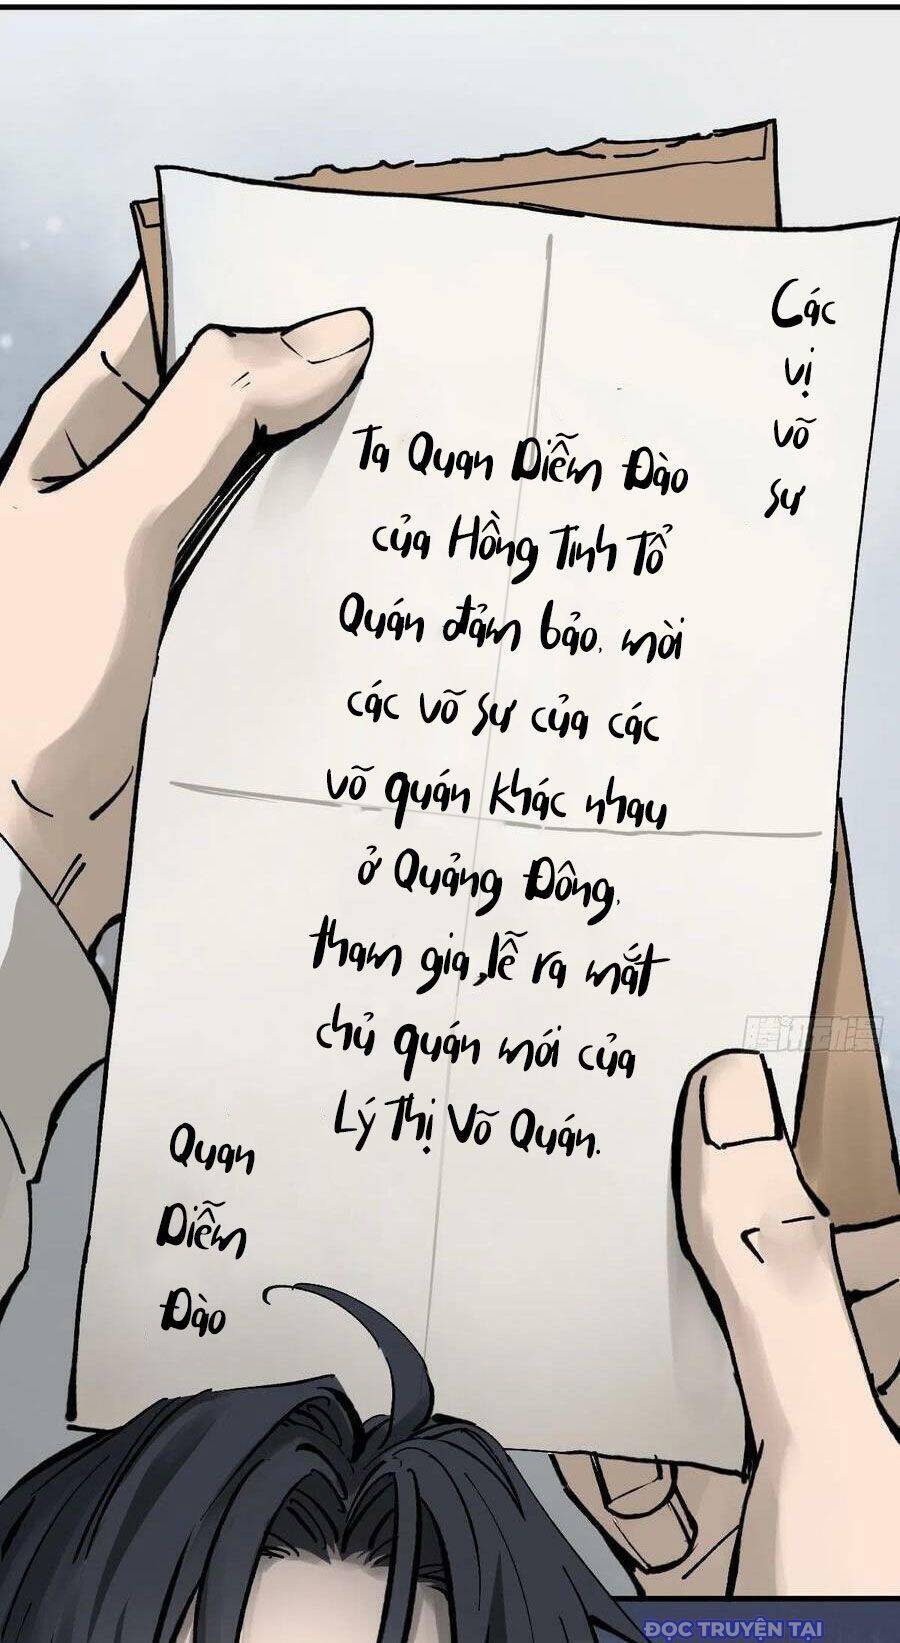 Các
vị
võ
sư
Ta Quan Diễm Đào
của Hồng Tinh Tổ
Quán đảm bảo, mời
các võ sư của các
võ quán khác nhau
ở Quảng Đông,
tham gia lễ ra mắt
chủ quán mới của
Lý Thị Võ Quán.
Quan
Diễm
Đào
腾讯动漫
ĐỌC TRUYỆN TẠI